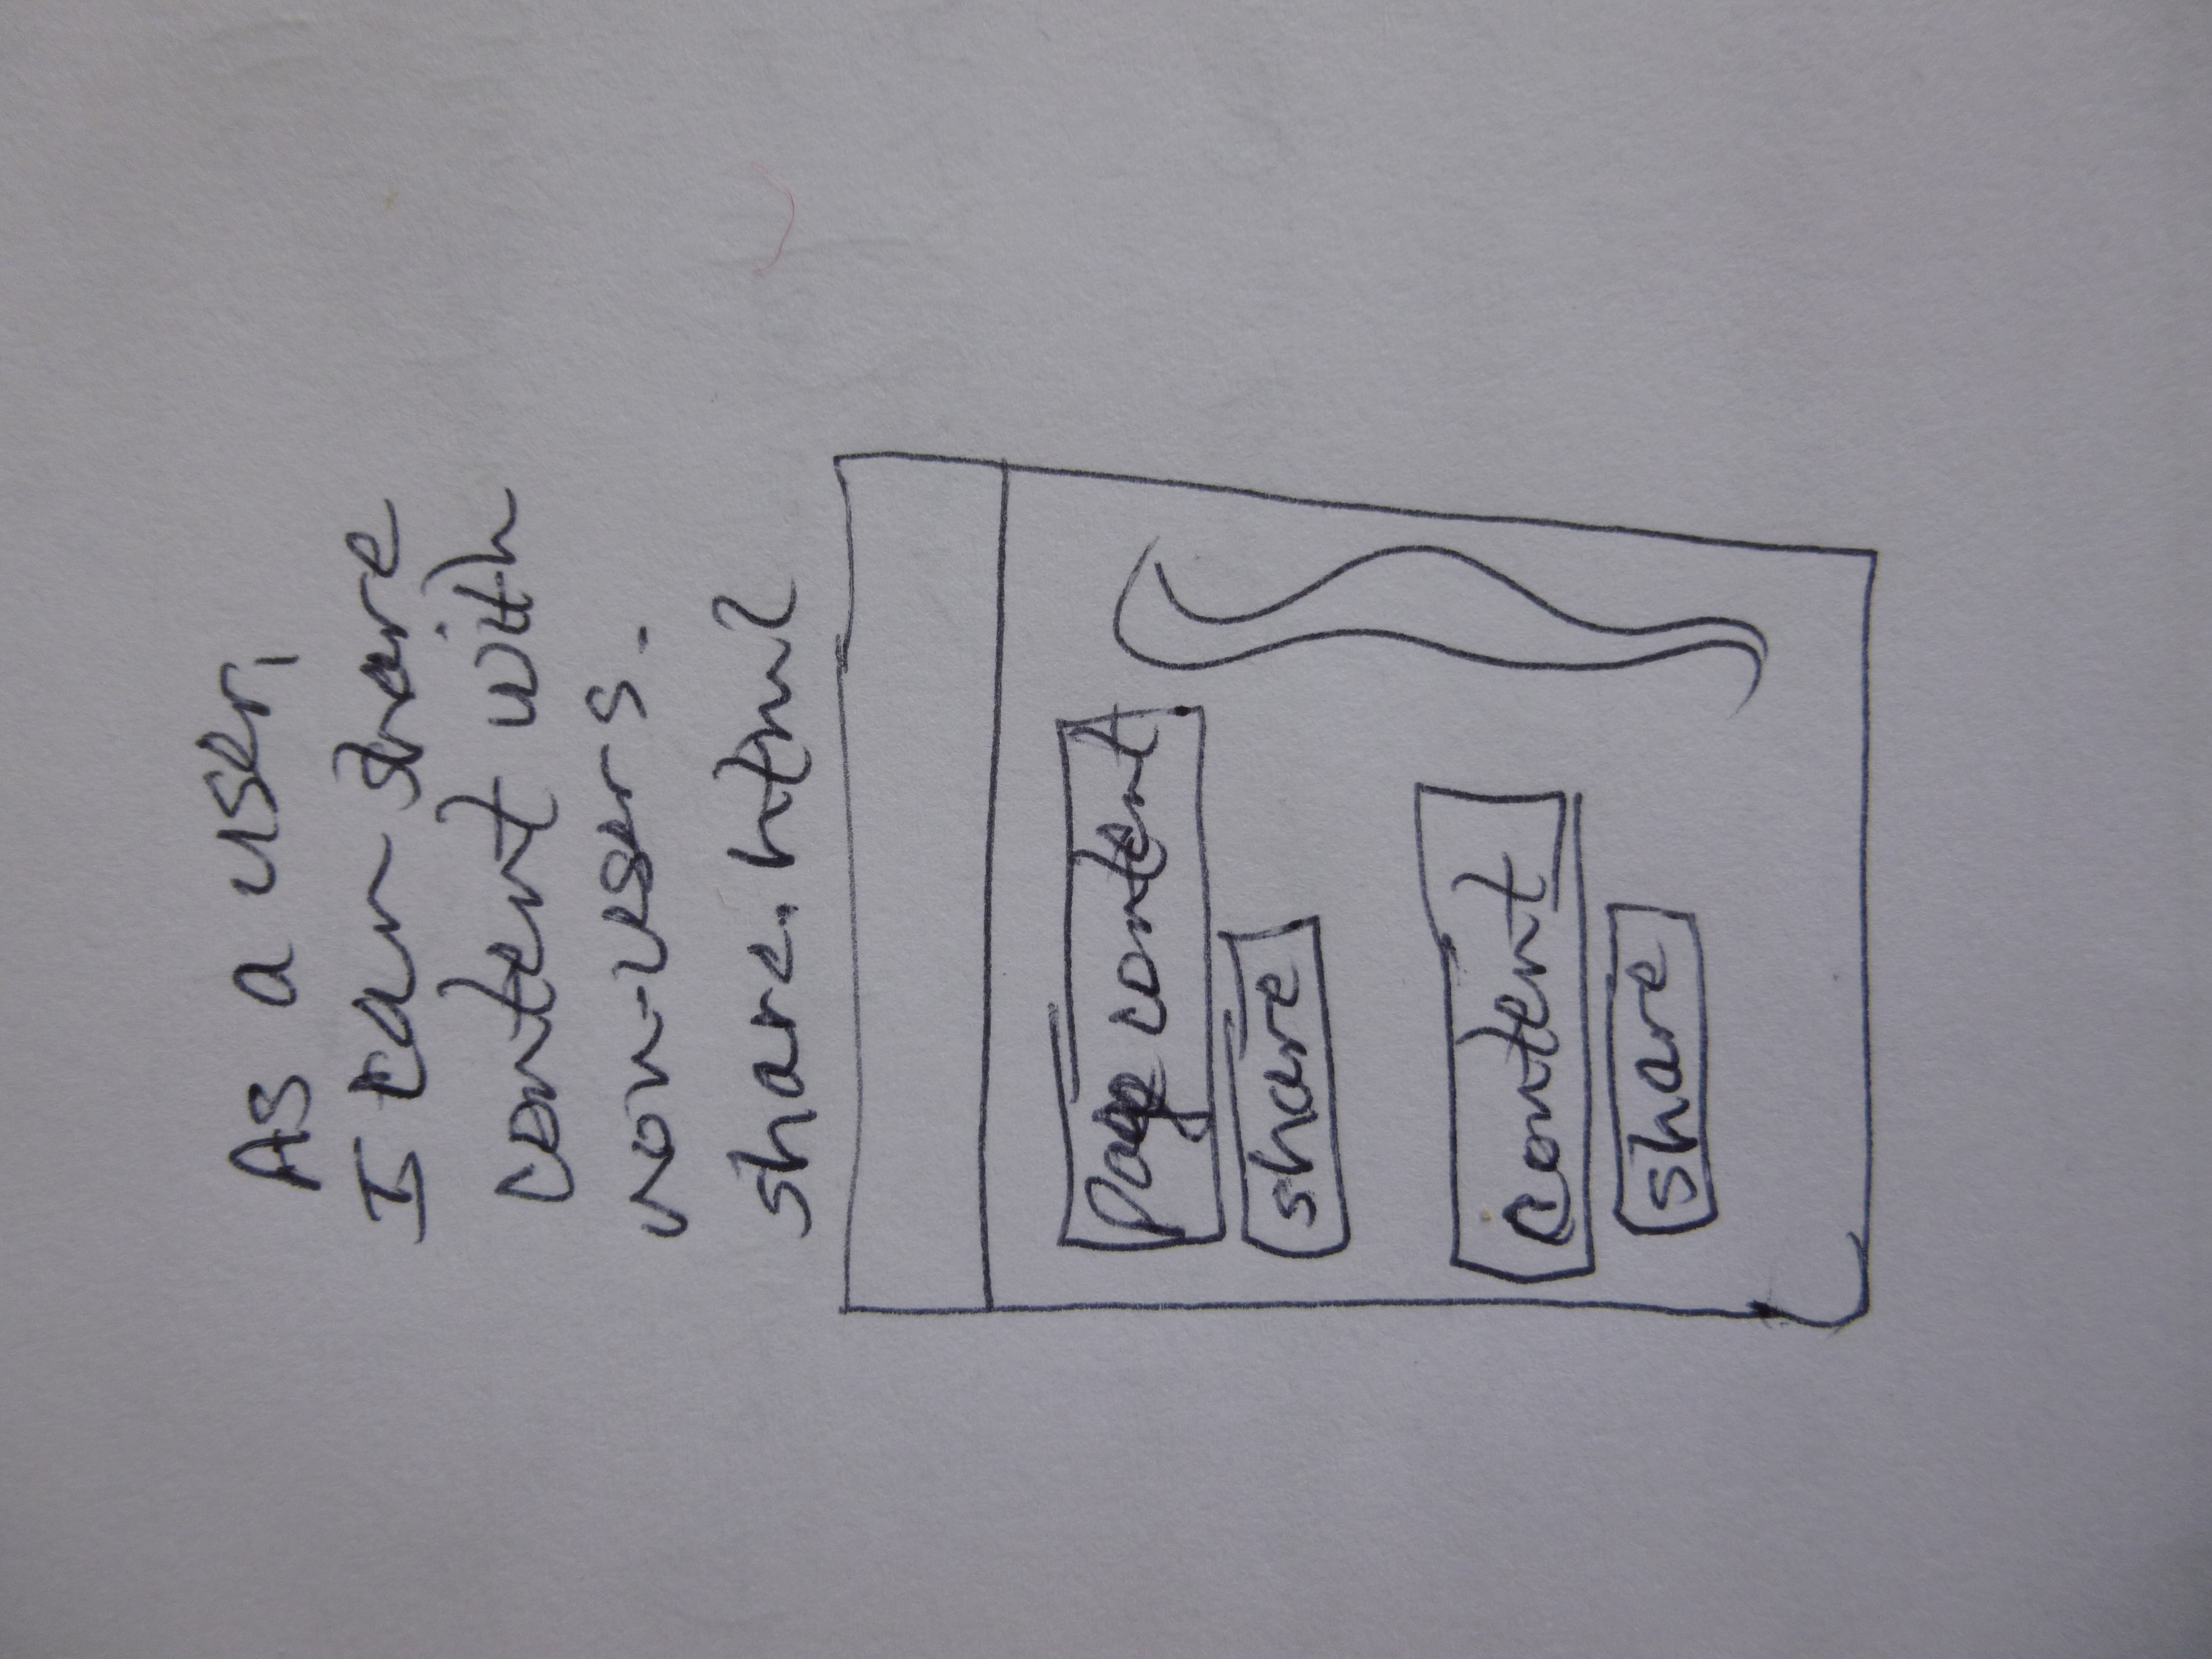 As a user,
I can share
content with
non-users.
share.html
Page content
share
content
share